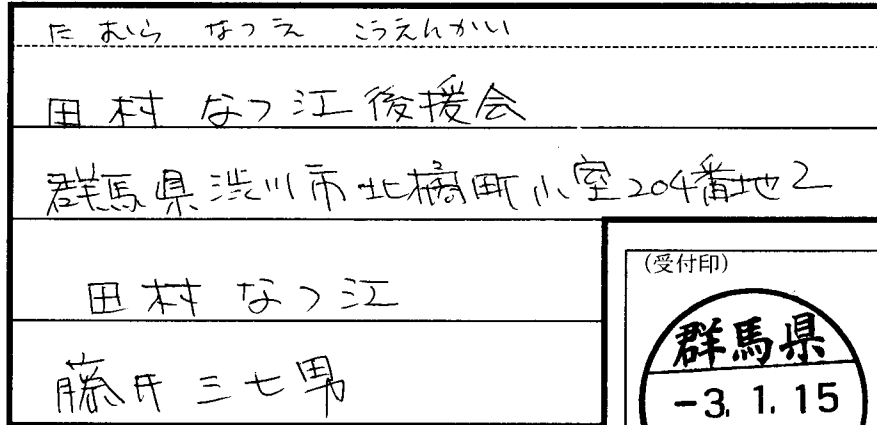 たむら なつえ こうえんかい
田村 なつ江後援会
群馬県渋川市北橘町小室204番地2
田村 なつ江
藤井 三七男
(受付印)
群馬県
-3.1.15